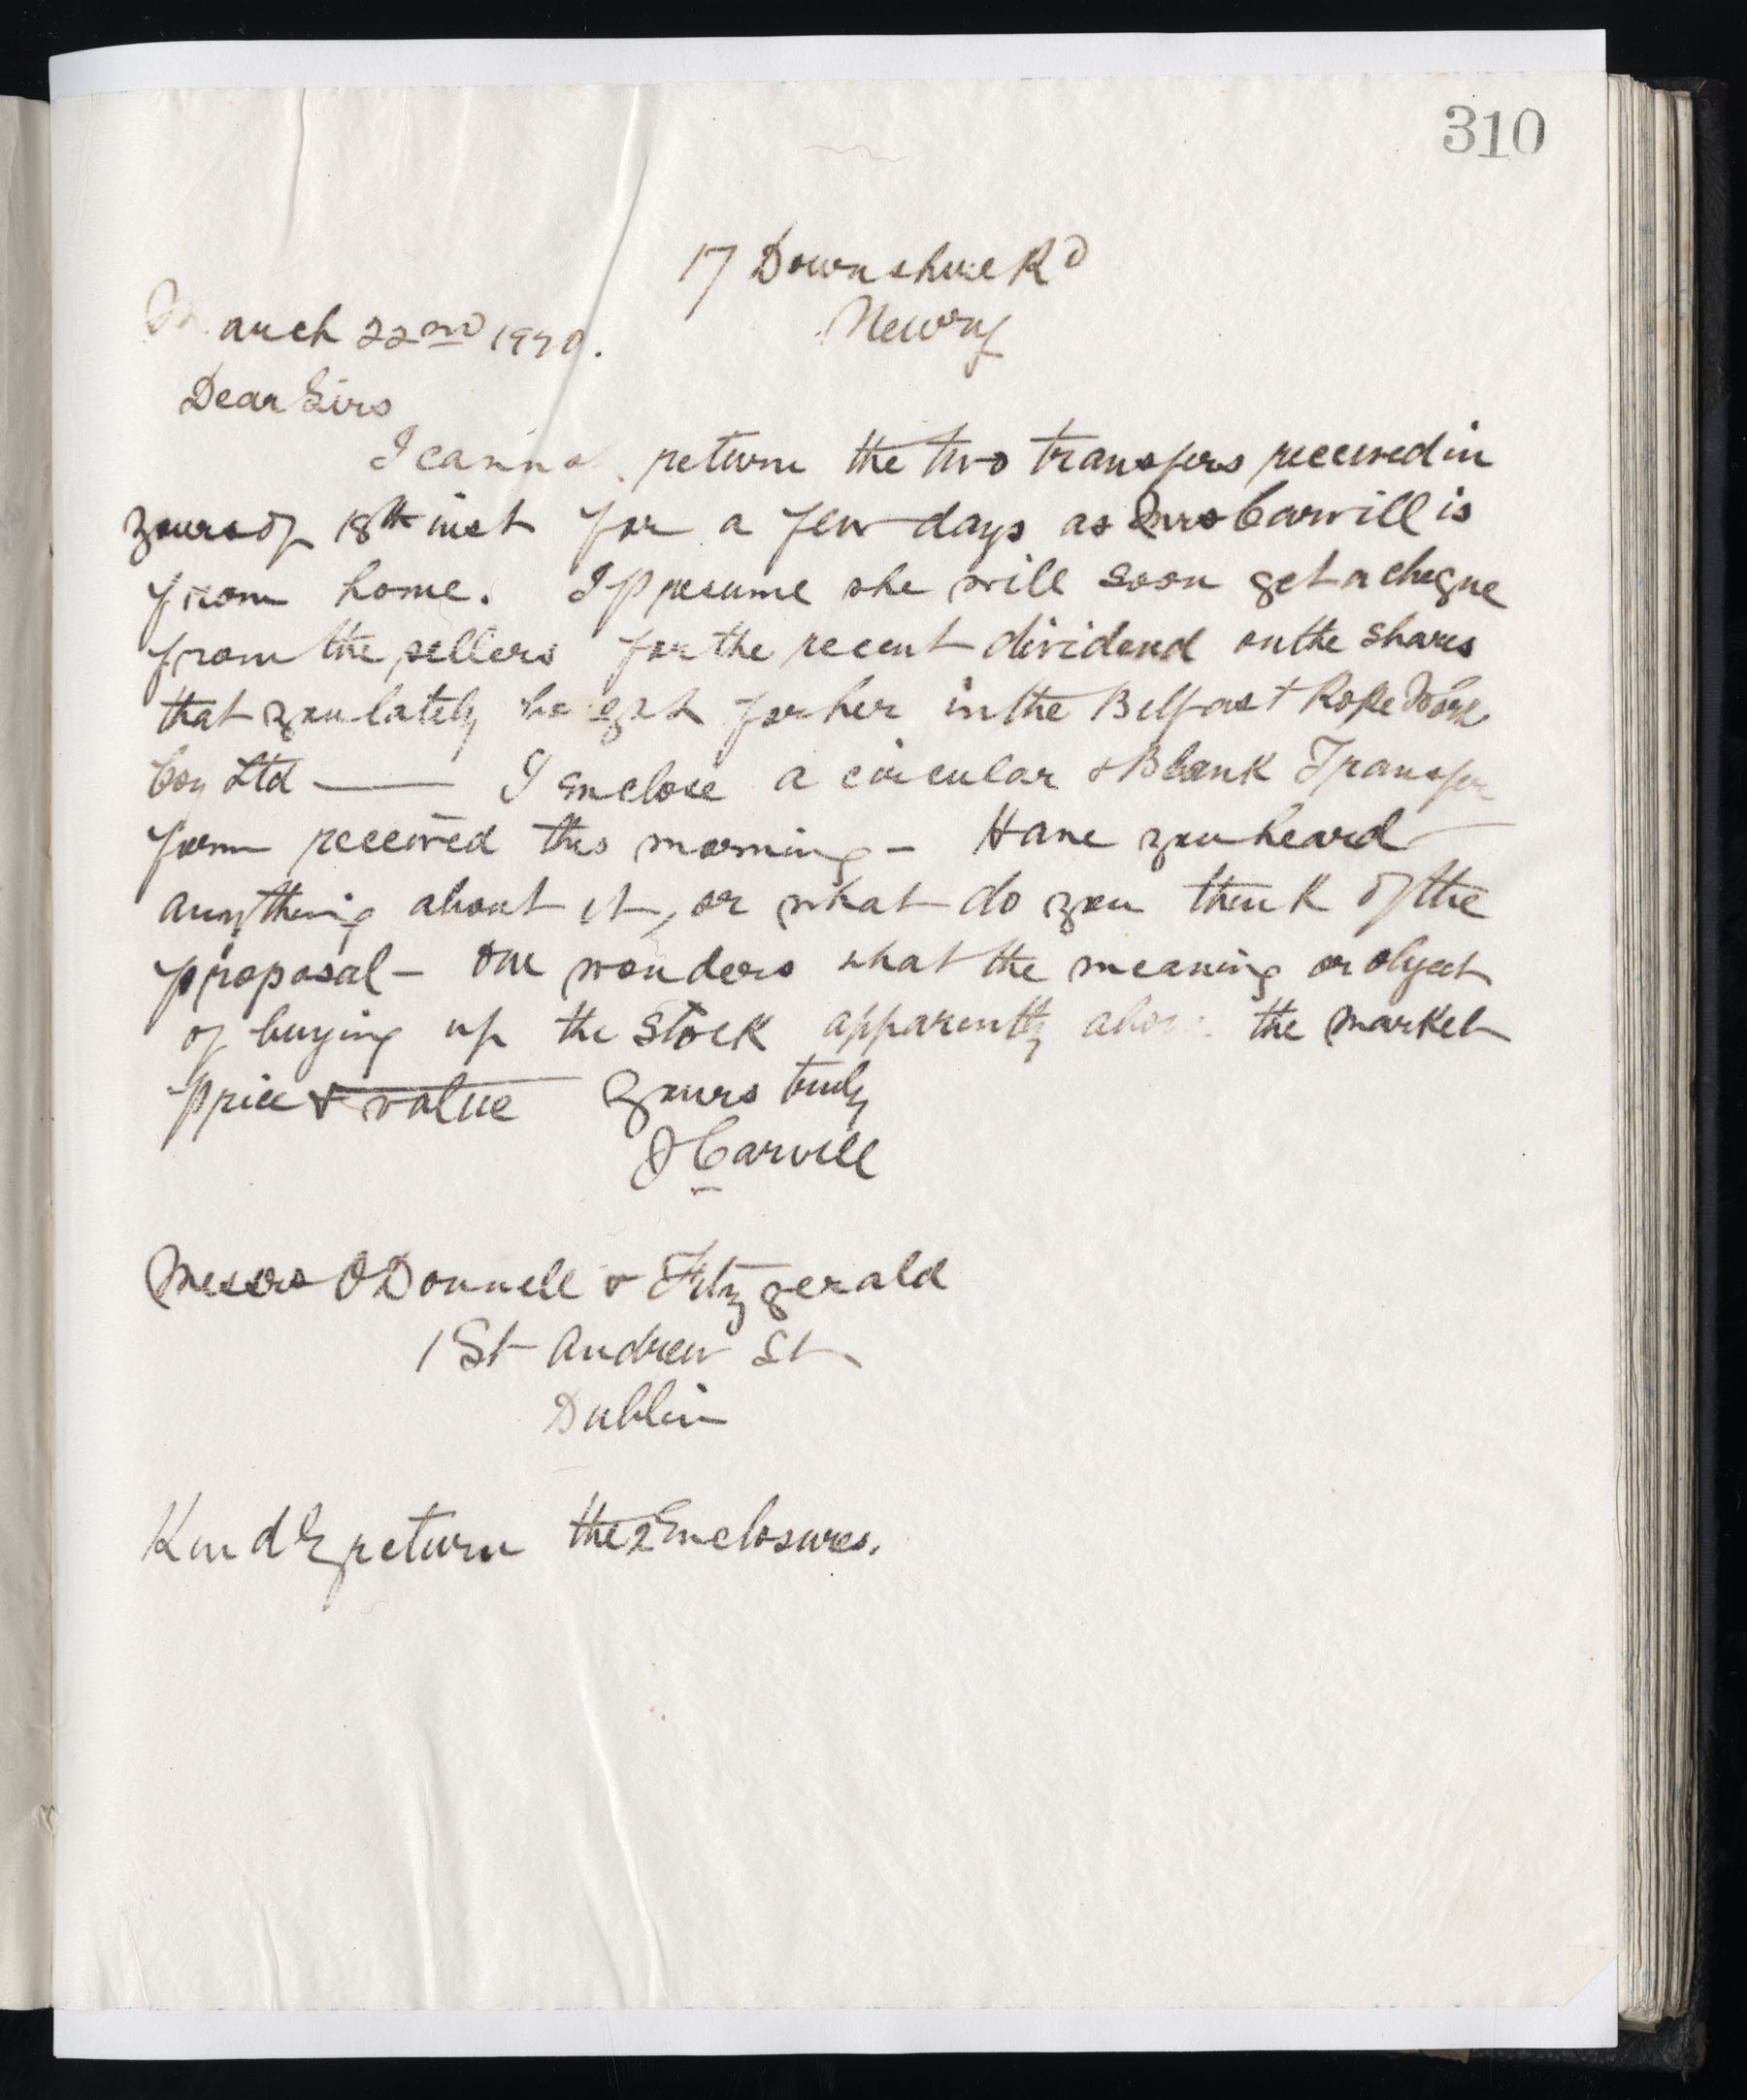 310
17 Downshire Rd
Newry
March 22nd
Dear Sirs
I cannot return the two transfers received in
yours of 18th inst for a few days as Mrs Carvill is
from home. I presume she will soon get a cheque
from the sellers for the recent dividend on the shares
that you lately bought for her in the Belfast Rope Work
Coy Ltd — I enclose a circular & Blank Transfer
form received this morning — Have you heard
anything about it, or what do you think of the
proposal — One wonders what the meaning or object
of buying up the Stock apparently above the market
price & value Yours truly
J Carvill
Messrs O'Donnell & Fitzgerald
1 St Andrew St
Dublin
Kindly return the 2 Enclosures.